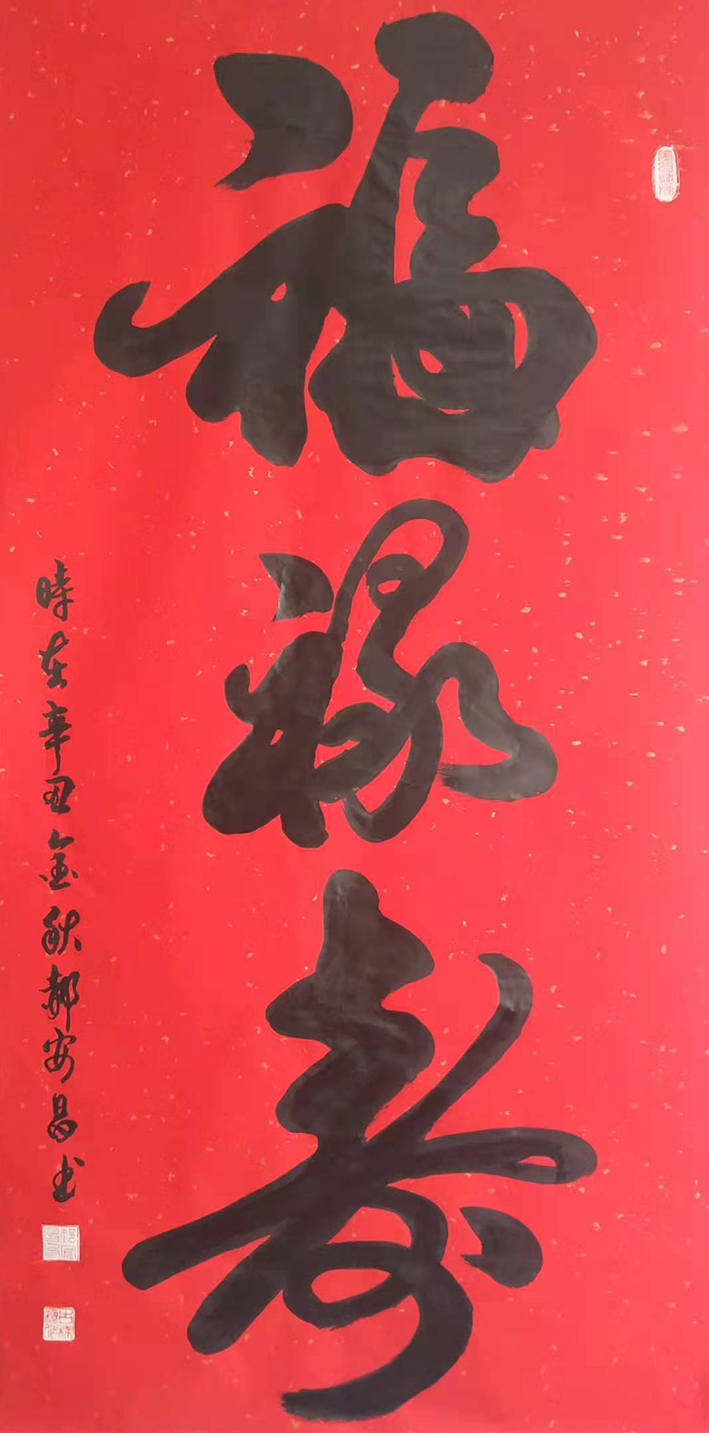 福禄寿
時在辛丑金秋郝安昌书